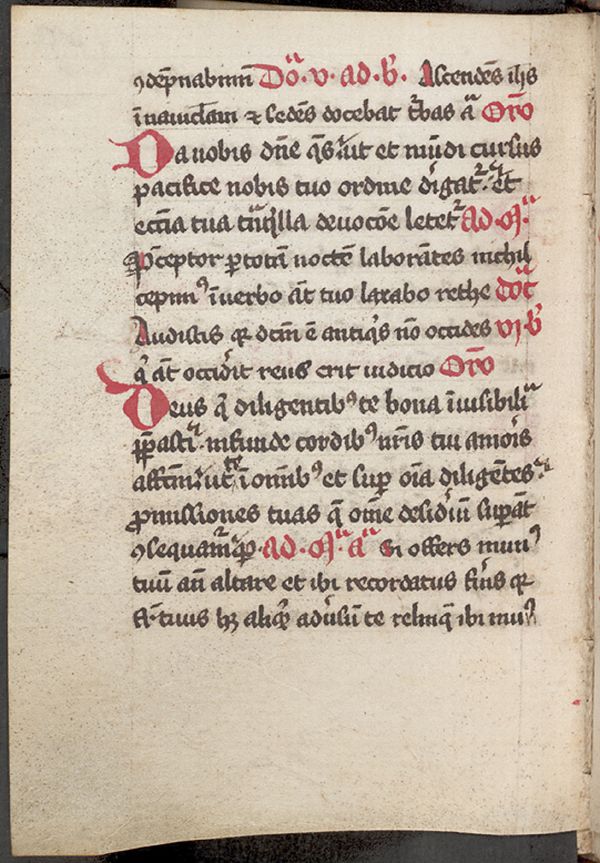 ꝯdēpnabimī Dōᵃ · v · ad · b̄ · Ascendēs ih̄s
ī nauiclam ⁊ sedēs docebat t̾bas aᷓ Or̄o
Da nobis dn̄e qᷤs ut et mūdi cursus
pacifice nobis tuo ordine dīgat᷑ et
ecc̄ia tua tͣnqͥlla deuocōe letet᷑ ad · M ·ᵃ
P̄ceptor ꝑ totā noctē laborātes nichil
cepimꝰ ī uerbo āt tuo laxabo rethe Dō
Audistis qꝛ dc̄m ē antiqͥs nō occides vj · b̄
qͥ āt occiďit reus erit iudicio Or̄o
Deus qͥ diligentibꝰ te bona īuisibiliᵃ
p̄pasti · infunde cordibꝰ nr̄is tui amoris
affcm̄ ut te ī om̄ibꝰ et suꝑ oīa diligētes
ꝓmissiones tuas q̄ om̄e desideriū suꝑāt
ꝯsequam᷑ ꝑ · ad · M ·ᵃ aᷓ Si offers munꝰ
tuū an̄ altare et ibi recordatus fu̾is qꝛ
fr̄ tuus hꝫ aliqͥd aduͤsū te relinq̄ ibi muꝰ